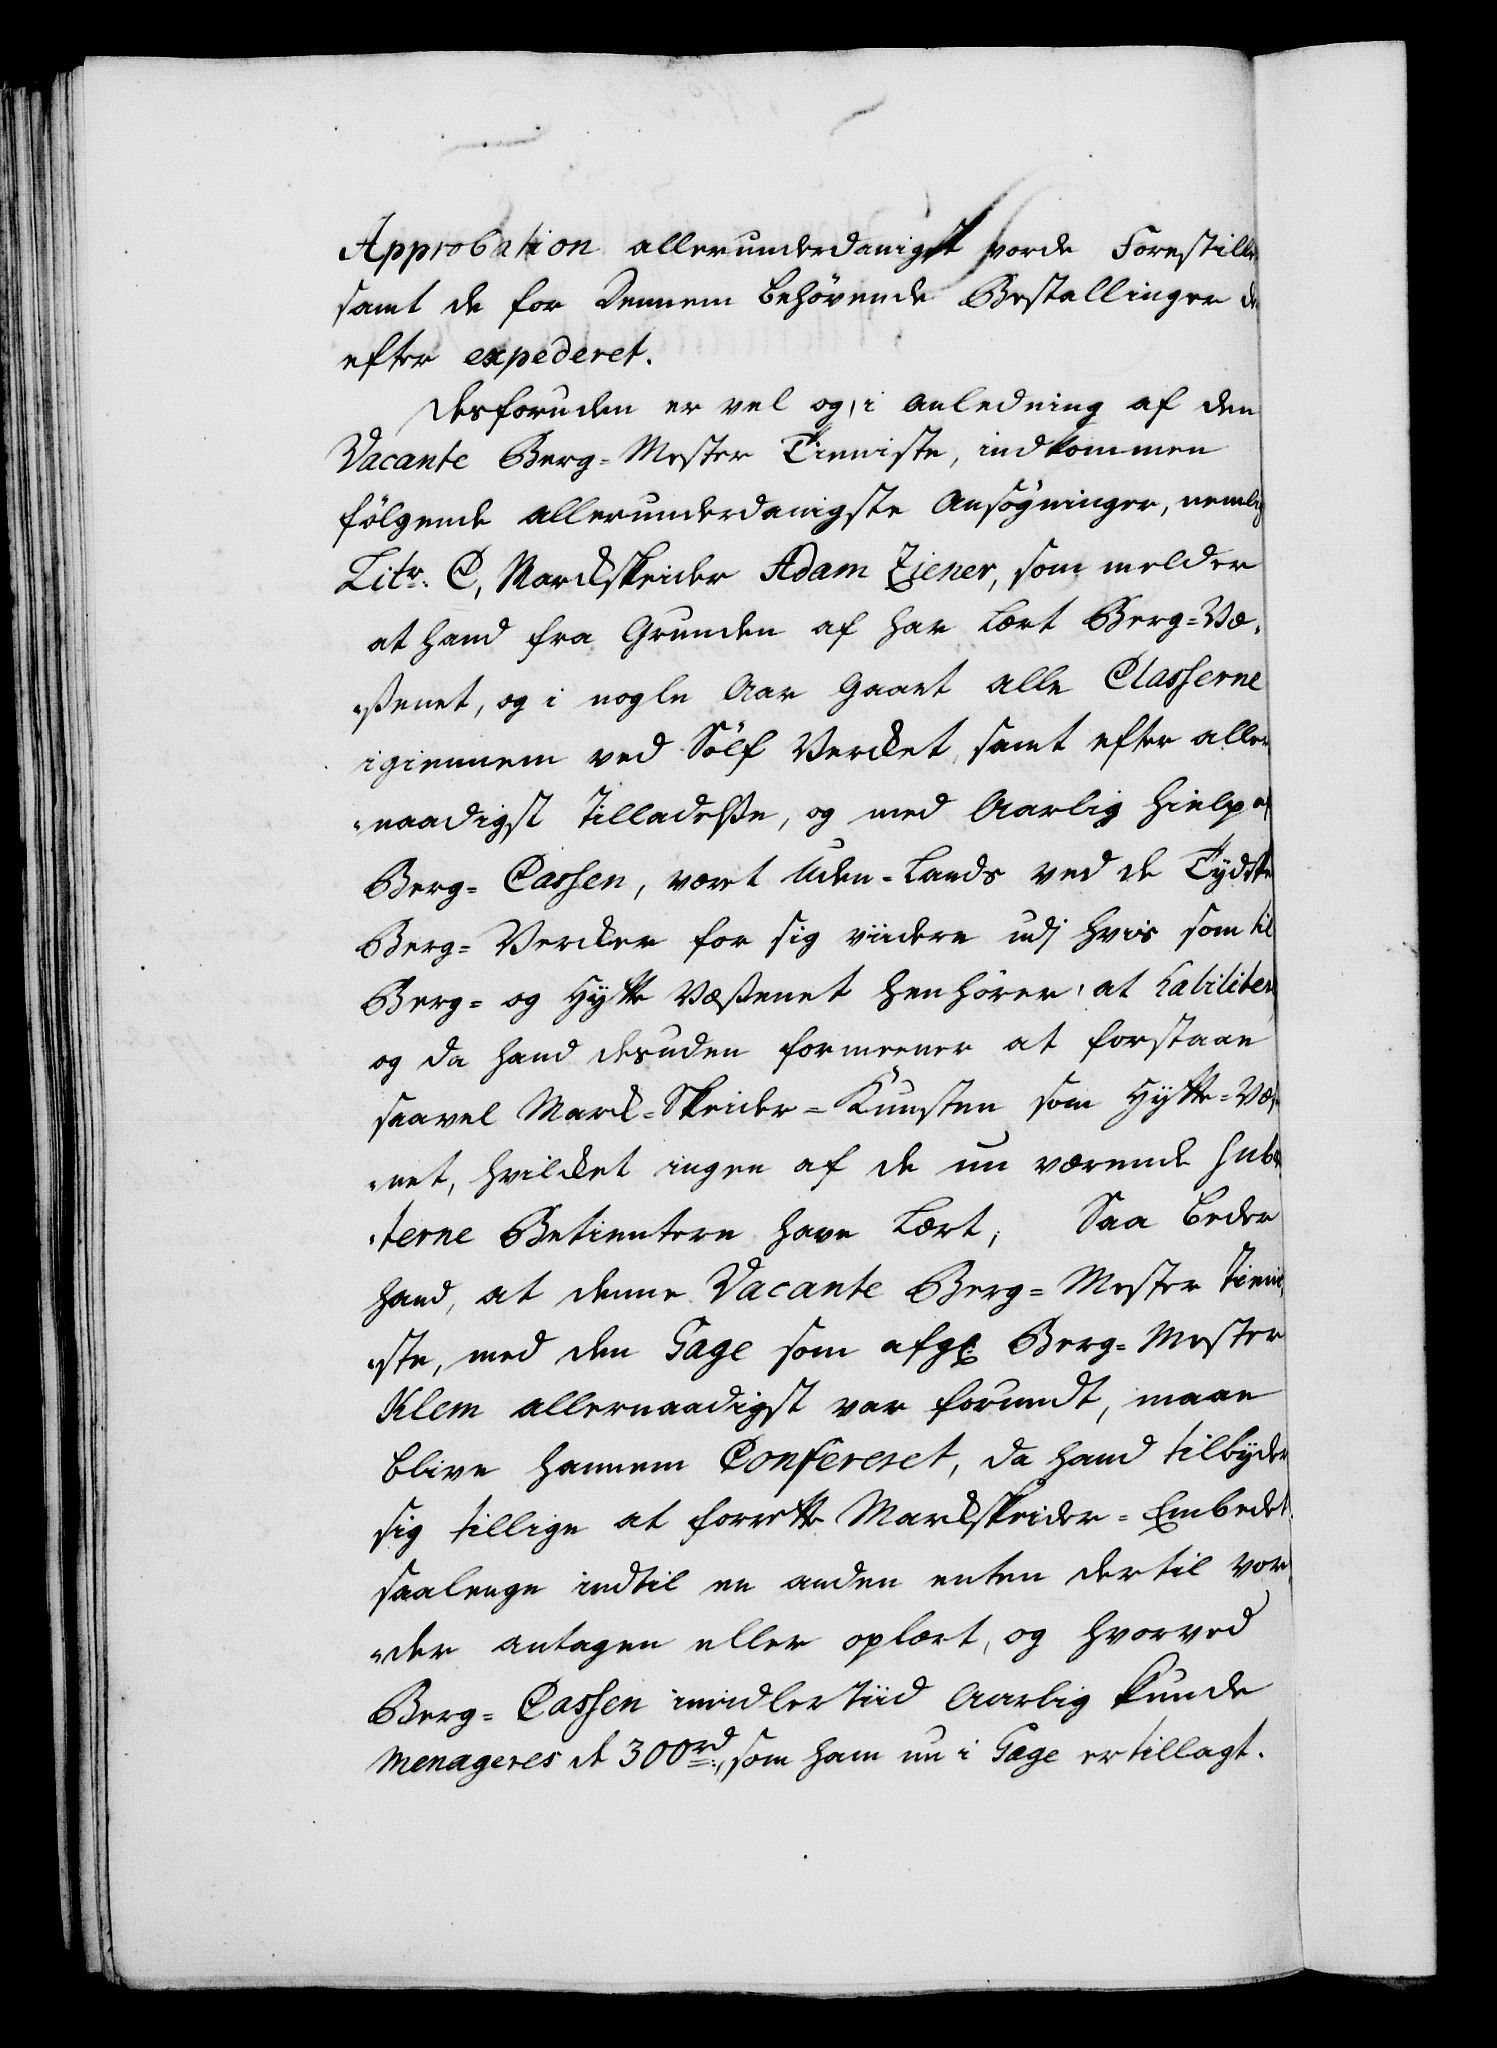 Approbation allerunderdanigst vorde Forestille
samt de for dennem behövende Bestallinger de
efter expederet.
Desforuden er vel og, i anledning af den
Vacante Berg=Mester Tieniste, indkommen
fölgende allerunderdanigste Ansögninger, nemlig
Litr. C, Marckskeider Adam Ziener, som melder
at hand fra Grunden af har lært Berg=Væ-
ßenet, og i nogle Aar gaaet alle Classerne
igiennem ved Sölf Vercket, samt efter aller-
naadigst Tilladelße, og med Aarlig hielp af
Berg=Cassen, været Uden-Lands ved de Tydske
Berg=Vercker for sig viidere udj hvis som til
Berg= og Hytte Væßenet henhörer, at habilitere,
og da hand desuden formeener at forstaae
saavel Marck=Skeider=Kunsten som Hytte=Væße-
net, hvilcket ingen af de nu værende Subal-
terne Betientere have lært; Saa beder
hand, at denne Vacante Berg=Mester Tieni-
ste, med den Gage som afgl. Berg=Mester
Klem allernaadigst var forundt, maae
blive hannem Confereret, da hand tilbyder
sig tillige at forrette Marckskeider=Embedet
saalenge indtil en anden enten dertil vor-
der antagen eller oplært, og hvorved
Berg=Cassen imidlertiid Aarlig kunde
menageres de 300 rd., som ham nu i Gage er tillagt.